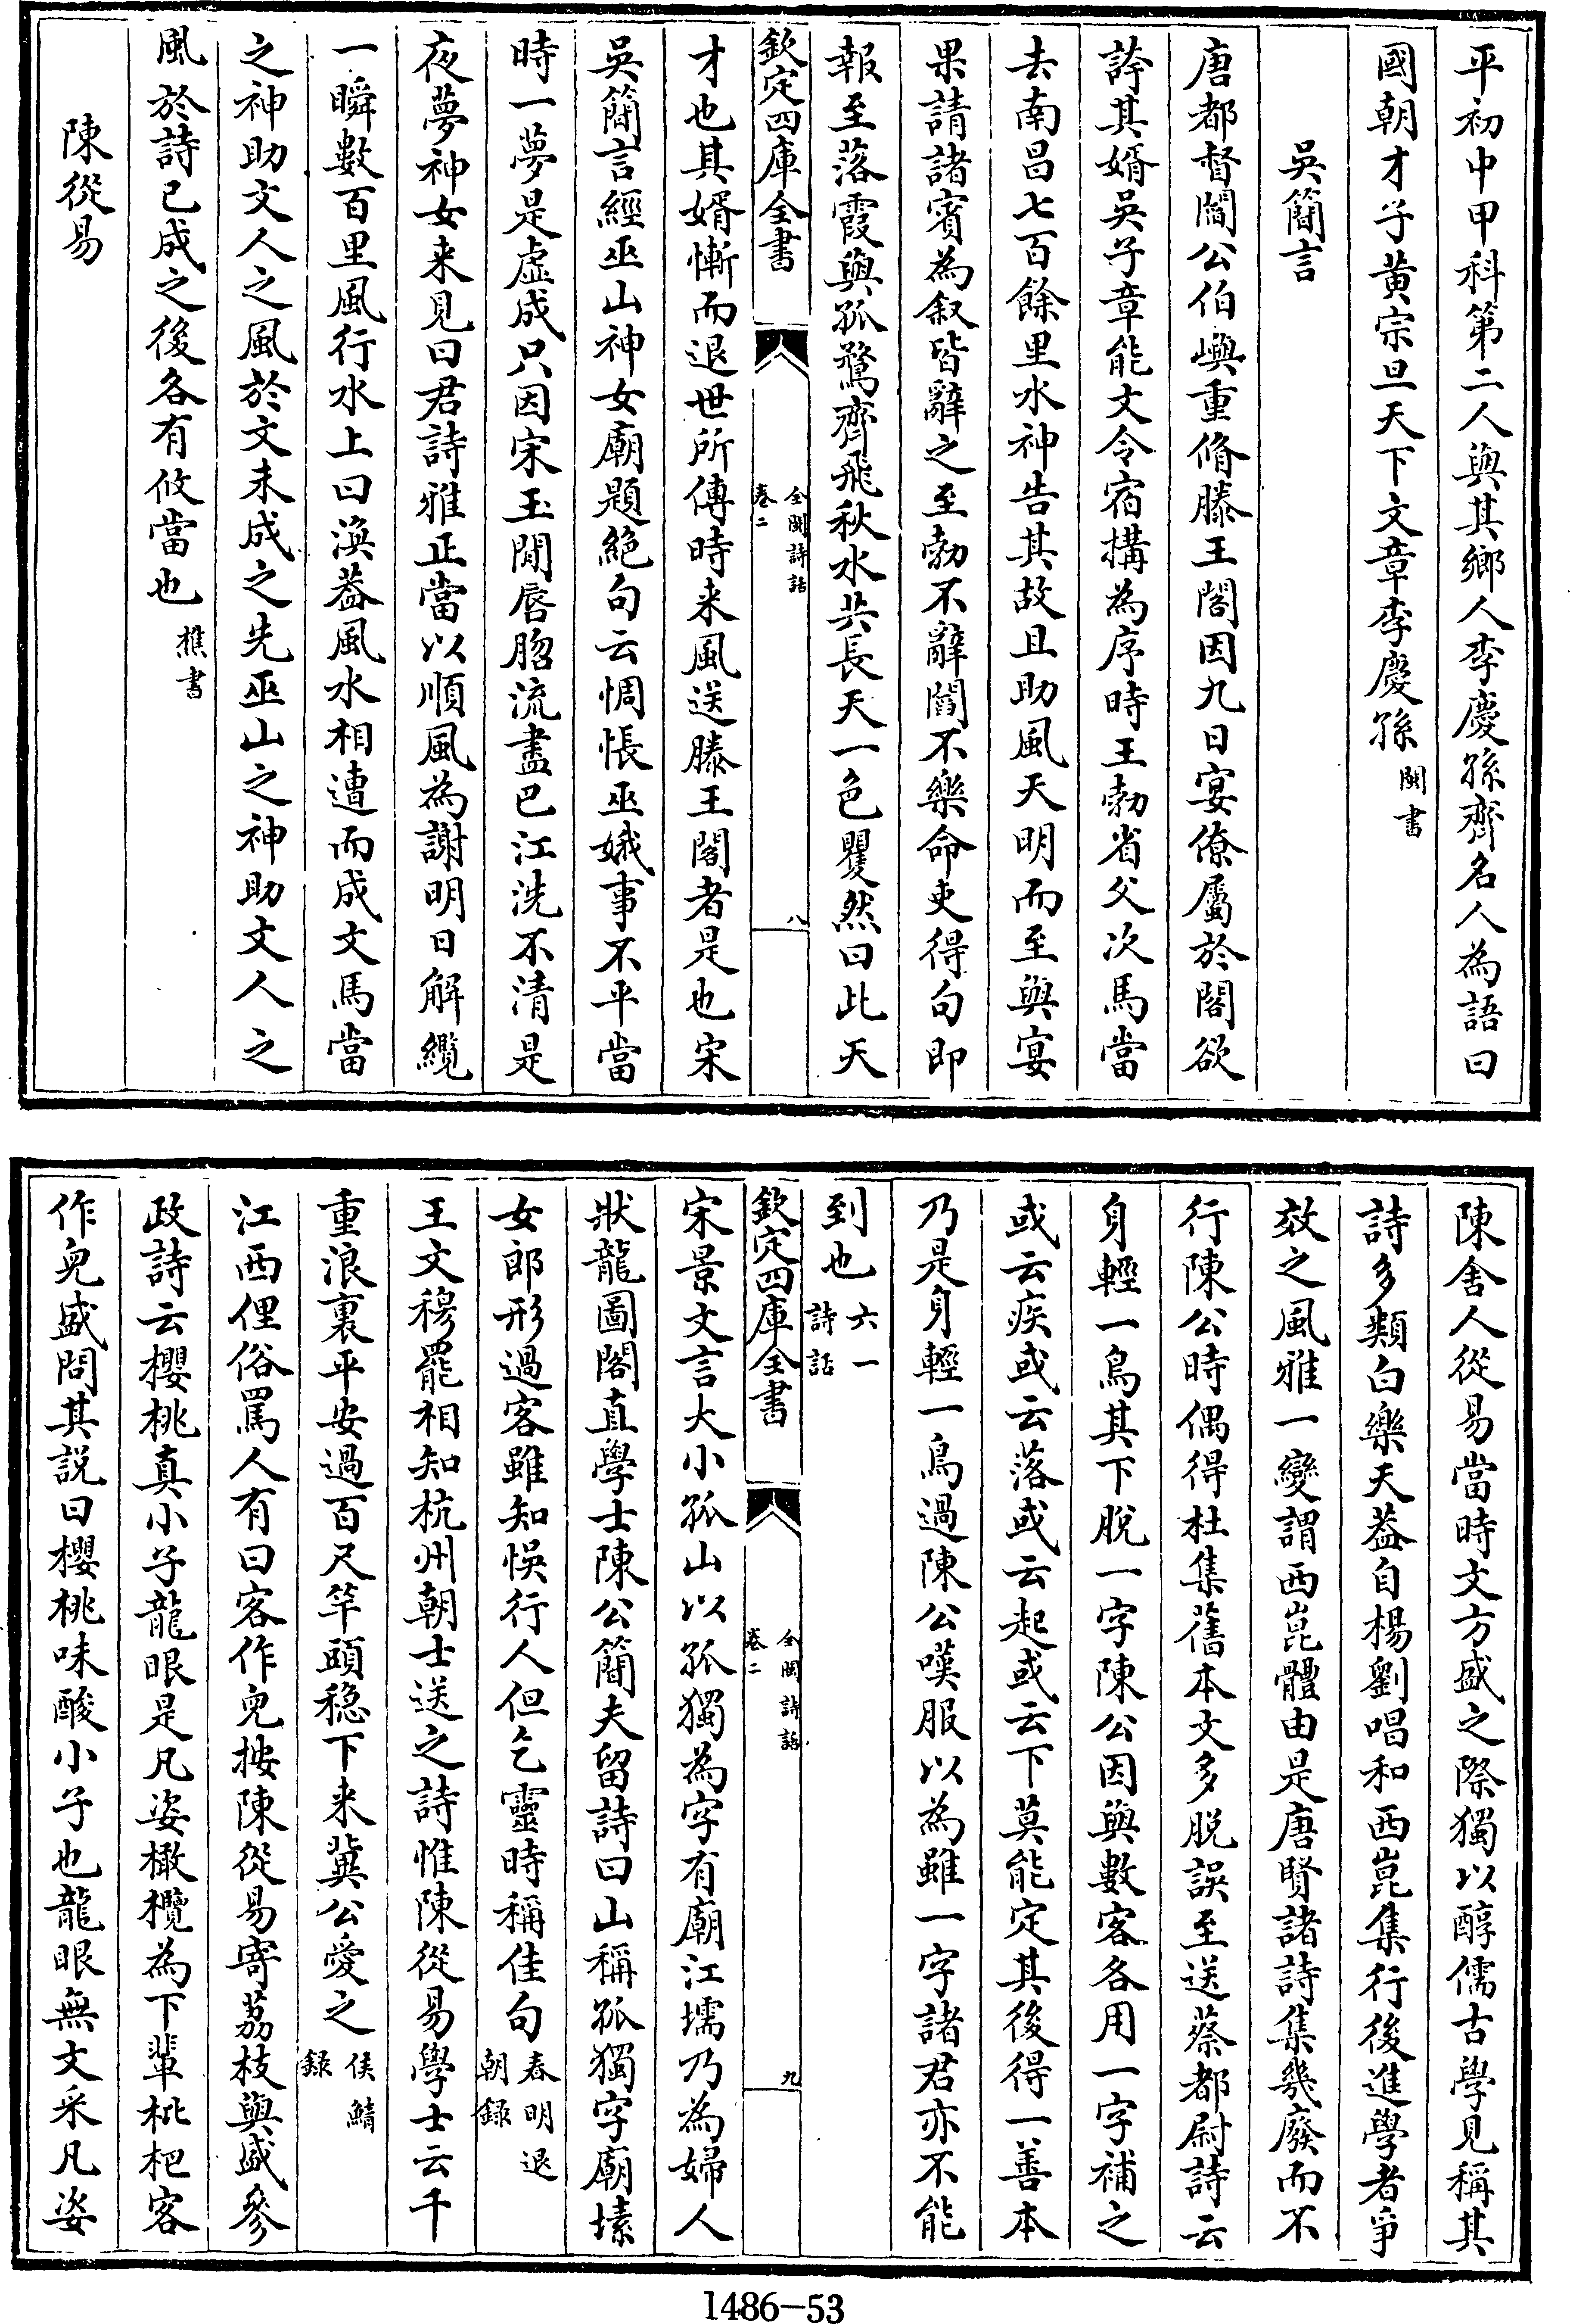 平初中甲科第二人與其鄉人李慶孫齊名人為語曰
國朝才子黃宗旦天下文章李慶孫 閩書
吳簡言
唐都督閻公伯嶼重脩滕王閣因九日宴僚屬於閣欲
誇其婿吳子章能文令宿搆為序時王勃省父次馬當
去南昌七百餘里水神告其故且助風天明而至與宴
果請諸賓為叙皆辭之至勃不辭閻不樂命吏得句即
報至落霞與孤鶩齊飛秋水共長天一色矍然曰此天
欽定四庫全書 全閩詩話 卷二 八
才也其婿慚而退世所傳時来風送滕王閣者是也宋
吳簡言經巫山神女廟題絕句云惆悵巫娥事不平當
時一夢是虛成只因宋玉閒唇脗流盡巴江洗不清是
夜夢神女来見曰君詩雅正當以順風為謝明日解纜
一瞬數百里風行水上曰渙葢風水相遭而成文馬當
之神助文人之風於文未成之先巫山之神助文人之
風於詩已成之後各有攸當也 樵書
陳從易
陳舍人從易當時文方盛之際獨以醇儒古學見稱其
詩多類白樂天葢自楊劉唱和西崑集行後進學者爭
效之風雅一變謂西崑體由是唐賢諸詩集幾廢而不
行陳公時偶得杜集舊本文多脱誤至送蔡都尉詩云
身輕一鳥其下脫一字陳公因與數客各用一字補之
或云疾或云落或云起或云下莫能定其後得一善本
乃是身輕一鳥過陳公嘆服以為雖一字諸君亦不能
到也 六一詩話
欽定四庫全書 全閩詩話 卷二 九
宋景文言大小孤山以孤獨為字有廟江壖乃為婦人
狀龍圖閣直學士陳公簡夫留詩曰山稱孤獨字廟塑
女郎形過客雖知悞行人但乞靈時稱佳句 春明退朝録
王文穆罷相知杭州朝士送之詩惟陳從易學士云千
重浪裏平安過百尺竿頭穩下来兾公愛之 侯鯖録
江西俚俗罵人有曰客作兒按陳從易寄荔枝與盛參
政詩云櫻桃真小子龍眼是凡姿橄欖為下輩枇杷客
作兒盛問其説曰櫻桃味酸小子也龍眼無文采凡姿
1486-53